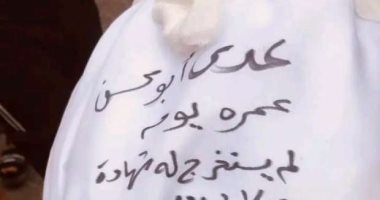 عدي أبو محسن
عمره يوم
لم يستخرج له شهادة